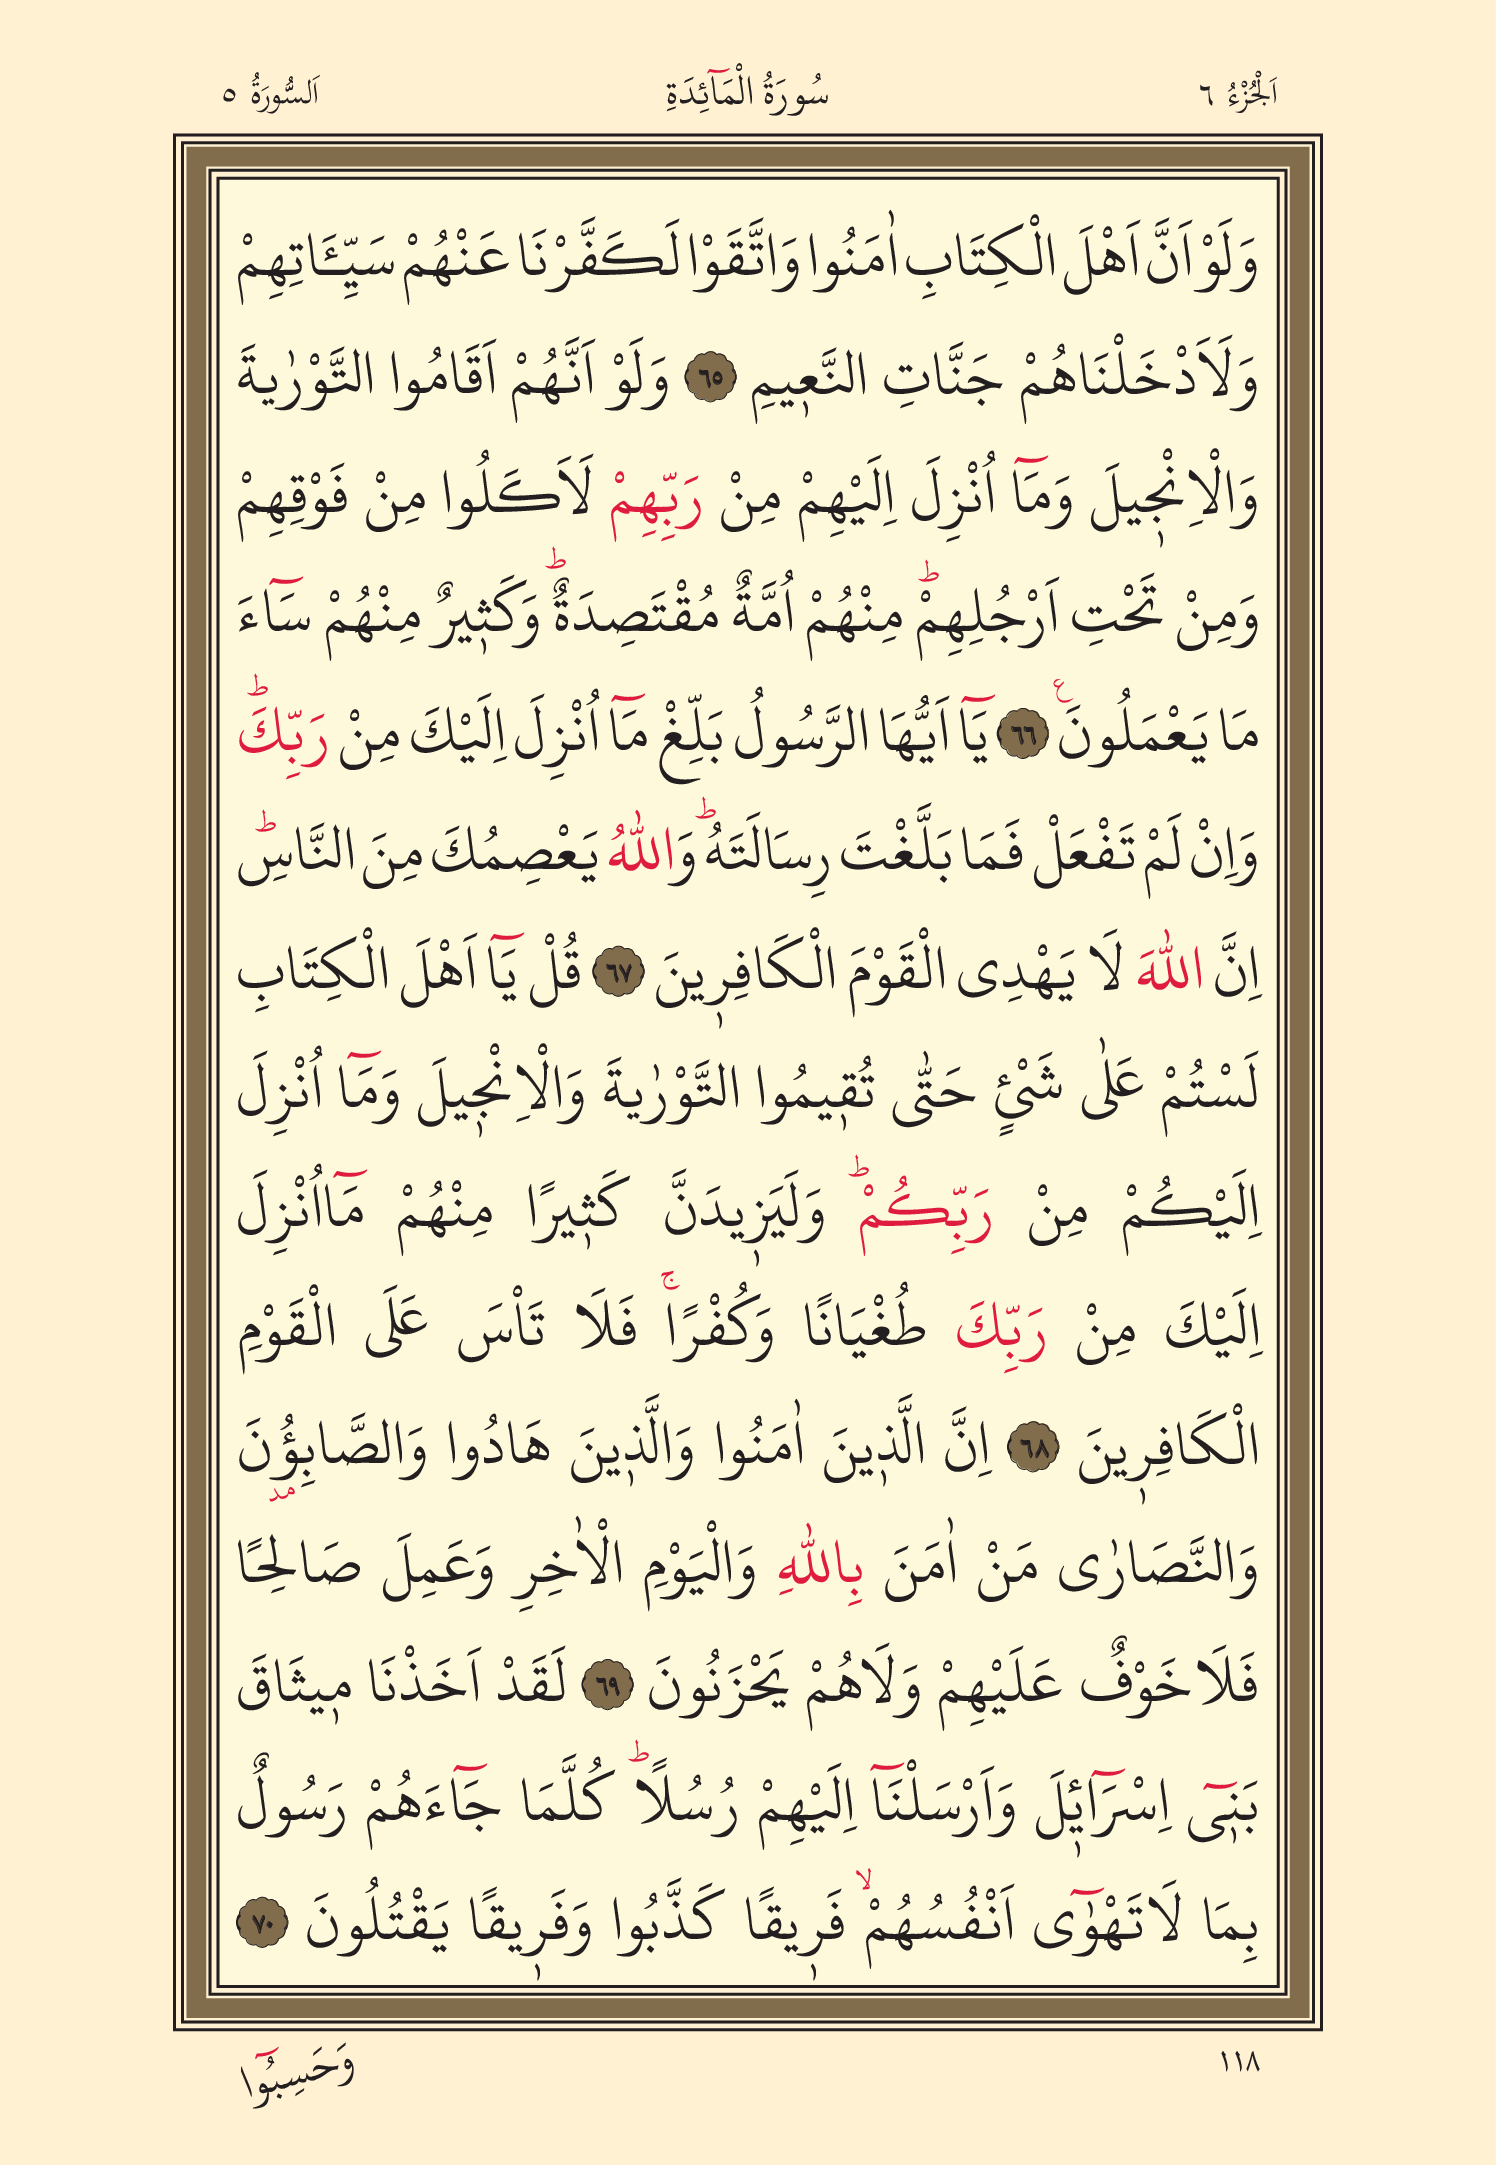 اَلْجُزْءُ ٦ سُورَةُ الْمَٓائِدَةِ اَلسُّورَةُ ٥
وَلَوْ اَنَّ اَهْلَ الْكِتَابِ اٰمَنُوا وَاتَّقَوْا لَكَفَّرْنَا عَنْهُمْ سَيِّـَٔاتِهِمْ
وَلَاَدْخَلْنَاهُمْ جَنَّاتِ النَّع۪يمِ ﴿٦٥﴾ وَلَوْ اَنَّهُمْ اَقَامُوا التَّوْرٰيةَ
وَالْاِنْج۪يلَ وَمَٓا اُنْزِلَ اِلَيْهِمْ مِنْ رَبِّهِمْ لَاَكَلُوا مِنْ فَوْقِهِمْ
وَمِنْ تَحْتِ اَرْجُلِهِمْۜ مِنْهُمْ اُمَّةٌ مُقْتَصِدَةٌۜ وَكَث۪يرٌ مِنْهُمْ سَٓاءَ
مَا يَعْمَلُونَ۟ ﴿٦٦﴾ يَٓا اَيُّهَا الرَّسُولُ بَلِّغْ مَٓا اُنْزِلَ اِلَيْكَ مِنْ رَبِّكَۜ
وَاِنْ لَمْ تَفْعَلْ فَمَا بَلَّغْتَ رِسَالَتَهُۜ وَاللّٰهُ يَعْصِمُكَ مِنَ النَّاسِۜ
اِنَّ اللّٰهَ لَا يَهْدِى الْقَوْمَ الْكَافِر۪ينَ ﴿٦٧﴾ قُلْ يَٓا اَهْلَ الْكِتَابِ
لَسْتُمْ عَلٰى شَيْئٍ حَتّٰى تُق۪يمُوا التَّوْرٰيةَ وَالْاِنْج۪يلَ وَمَٓا اُنْزِلَ
اِلَيْكُمْ مِنْ رَبِّكُمْۜ وَلَيَز۪يدَنَّ كَث۪يرًا مِنْهُمْ مَٓااُنْزِلَ
اِلَيْكَ مِنْ رَبِّكَ طُغْيَانًا وَكُفْرًاۚ فَلَا تَاْسَ عَلَى الْقَوْمِ
الْكَافِر۪ينَ ﴿٦٨﴾ اِنَّ الَّذ۪ينَ اٰمَنُوا وَالَّذ۪ينَ هَادُوا وَالصَّابِؤُ۫نَ
مد
وَالنَّصَارٰى مَنْ اٰمَنَ بِاللّٰهِ وَالْيَوْمِ الْاٰخِرِ وَعَمِلَ صَالِحًا
فَلَا خَوْفٌ عَلَيْهِمْ وَلَاهُمْ يَحْزَنُونَ ﴿٦٩﴾ لَقَدْ اَخَذْنَا م۪يثَاقَ
بَن۪ٓى اِسْرَٓائ۪لَ وَاَرْسَلْنَٓا اِلَيْهِمْ رُسُلًاۜ كُلَّمَا جَٓاءَهُمْ رَسُولٌ
بِمَا لَاتَهْوٰٓى اَنْفُسُهُمْۙ فَر۪يقًا كَذَّبُوا وَفَر۪يقًا يَقْتُلُونَ ﴿٧٠﴾
١١٨ وَحَسِبُٓوا